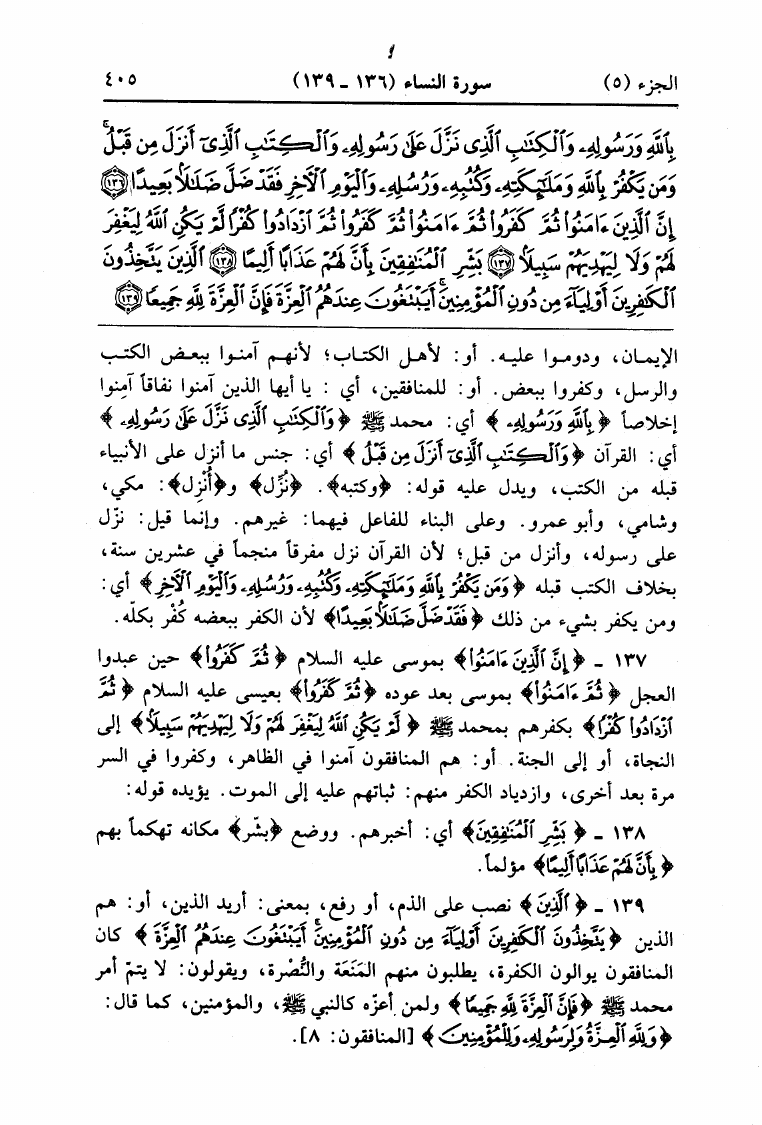 الجزء (٥) سورة النساء (١٣٦ - ١٣٩) ٤٠٥
بِٱللَّهِ وَرَسُولِهِۦ وَٱلْكِتَٰبِ ٱلَّذِى نَزَّلَ عَلَىٰ رَسُولِهِۦ وَٱلْكِتَٰبِ ٱلَّذِىٓ أَنزَلَ مِن قَبْلُ ۚ
وَمَن يَكْفُرْ بِٱللَّهِ وَمَلَٰٓئِكَتِهِۦ وَكُتُبِهِۦ وَرُسُلِهِۦ وَٱلْيَوْمِ ٱلْءَاخِرِ فَقَدْ ضَلَّ ضَلَٰلًۢا بَعِيدًا ﴿١٣٦﴾
إِنَّ ٱلَّذِينَ ءَامَنُوا۟ ثُمَّ كَفَرُوا۟ ثُمَّ ءَامَنُوا۟ ثُمَّ كَفَرُوا۟ ثُمَّ ٱزْدَادُوا۟ كُفْرًا لَّمْ يَكُنِ ٱللَّهُ لِيَغْفِرَ
لَهُمْ وَلَا لِيَهْدِيَهُمْ سَبِيلًۢا ﴿١٣٧﴾ بَشِّرِ ٱلْمُنَٰفِقِينَ بِأَنَّ لَهُمْ عَذَابًا أَلِيمًا ﴿١٣٨﴾ ٱلَّذِينَ يَتَّخِذُونَ
ٱلْكَٰفِرِينَ أَوْلِيَآءَ مِن دُونِ ٱلْمُؤْمِنِينَ ۚ أَيَبْتَغُونَ عِندَهُمُ ٱلْعِزَّةَ فَإِنَّ ٱلْعِزَّةَ لِلَّهِ جَمِيعًا ﴿١٣٩﴾
الإيمـان، ودومـوا عليـه. أو: لأهـل الكتـاب؛ لأنهـم آمنـوا ببعـض الكتـب
والرسل، وكفروا ببعض. أو: للمنافقين، أي : يا أيها الذين آمنوا نفاقاً آمِنوا
إخلاصاً ﴿بِٱللَّهِ وَرَسُولِهِۦ﴾ أي: محمد ﷺ ﴿وَٱلْكِتَٰبِ ٱلَّذِى نَزَّلَ عَلَىٰ رَسُولِهِۦ﴾
أي: القرآن ﴿وَٱلْكِتَٰبِ ٱلَّذِىٓ أَنزَلَ مِن قَبْلُ﴾ أي: جنس ما أنزل على الأنبياء
قبله من الكتب، ويدل عليه قوله: ﴿وكتبه﴾. ﴿نُزِّل﴾ و﴿أُنْزِل﴾: مكي،
وشامي، وأبو عمرو. وعلى البناء للفاعل فيهما: غيرهم. وإنما قيل: نزّل
على رسوله، وأنزل من قبل؛ لأن القرآن نزل مفرقاً منجماً في عشرين سنة،
بخلاف الكتب قبله ﴿وَمَن يَكْفُرْ بِٱللَّهِ وَمَلَٰٓئِكَتِهِۦ وَكُتُبِهِۦ وَرُسُلِهِۦ وَٱلْيَوْمِ ٱلْءَاخِرِ﴾ أي:
ومن يكفر بشيء من ذلك ﴿فَقَدْ ضَلَّ ضَلَٰلًۢا بَعِيدًا﴾ لأن الكفر ببعضه كُفْر بكلّه.
١٣٧ ـ ﴿إِنَّ ٱلَّذِينَ ءَامَنُوا۟﴾ بموسى عليه السلام ﴿ثُمَّ كَفَرُوا۟﴾ حين عبدوا
العجل ﴿ثُمَّ ءَامَنُوا۟﴾ بموسى بعد عوده ﴿ثُمَّ كَفَرُوا۟﴾ بعيسى عليه السلام ﴿ثُمَّ
ٱزْدَادُوا۟ كُفْرًا﴾ بكفرهم بمحمد ﷺ ﴿لَّمْ يَكُنِ ٱللَّهُ لِيَغْفِرَ لَهُمْ وَلَا لِيَهْدِيَهُمْ سَبِيلًۢا﴾ إلى
النجاة، أو إلى الجنة. أو: هم المنافقون آمنوا في الظاهر، وكفروا في السر
مرة بعد أخرى، وازدياد الكفر منهم: ثباتهم عليه إلى الموت. يؤيده قوله:
١٣٨ ـ ﴿بَشِّرِ ٱلْمُنَٰفِقِينَ﴾ أي: أخبرهم. ووضع ﴿بشّر﴾ مكانه تهكماً بهم
﴿بِأَنَّ لَهُمْ عَذَابًا أَلِيمًا﴾ مؤلماً.
١٣٩ ـ ﴿ٱلَّذِينَ﴾ نصب على الذم، أو رفع، بمعنى: أريد الذين، أو: هم
الذين ﴿يَتَّخِذُونَ ٱلْكَٰفِرِينَ أَوْلِيَآءَ مِن دُونِ ٱلْمُؤْمِنِينَ ۚ أَيَبْتَغُونَ عِندَهُمُ ٱلْعِزَّةَ﴾ كان
المنافقون يوالون الكفرة، يطلبون منهم المَنَعَة والنُّصْرة، ويقولون: لا يتمّ أمر
محمد ﷺ ﴿فَإِنَّ ٱلْعِزَّةَ لِلَّهِ جَمِيعًا﴾ ولمن أعزّه كالنبي ﷺ، والمؤمنين، كما قال:
﴿وَلِلَّهِ ٱلْعِزَّةُ وَلِرَسُولِهِۦ وَلِلْمُؤْمِنِينَ﴾ [المنافقون: ٨].